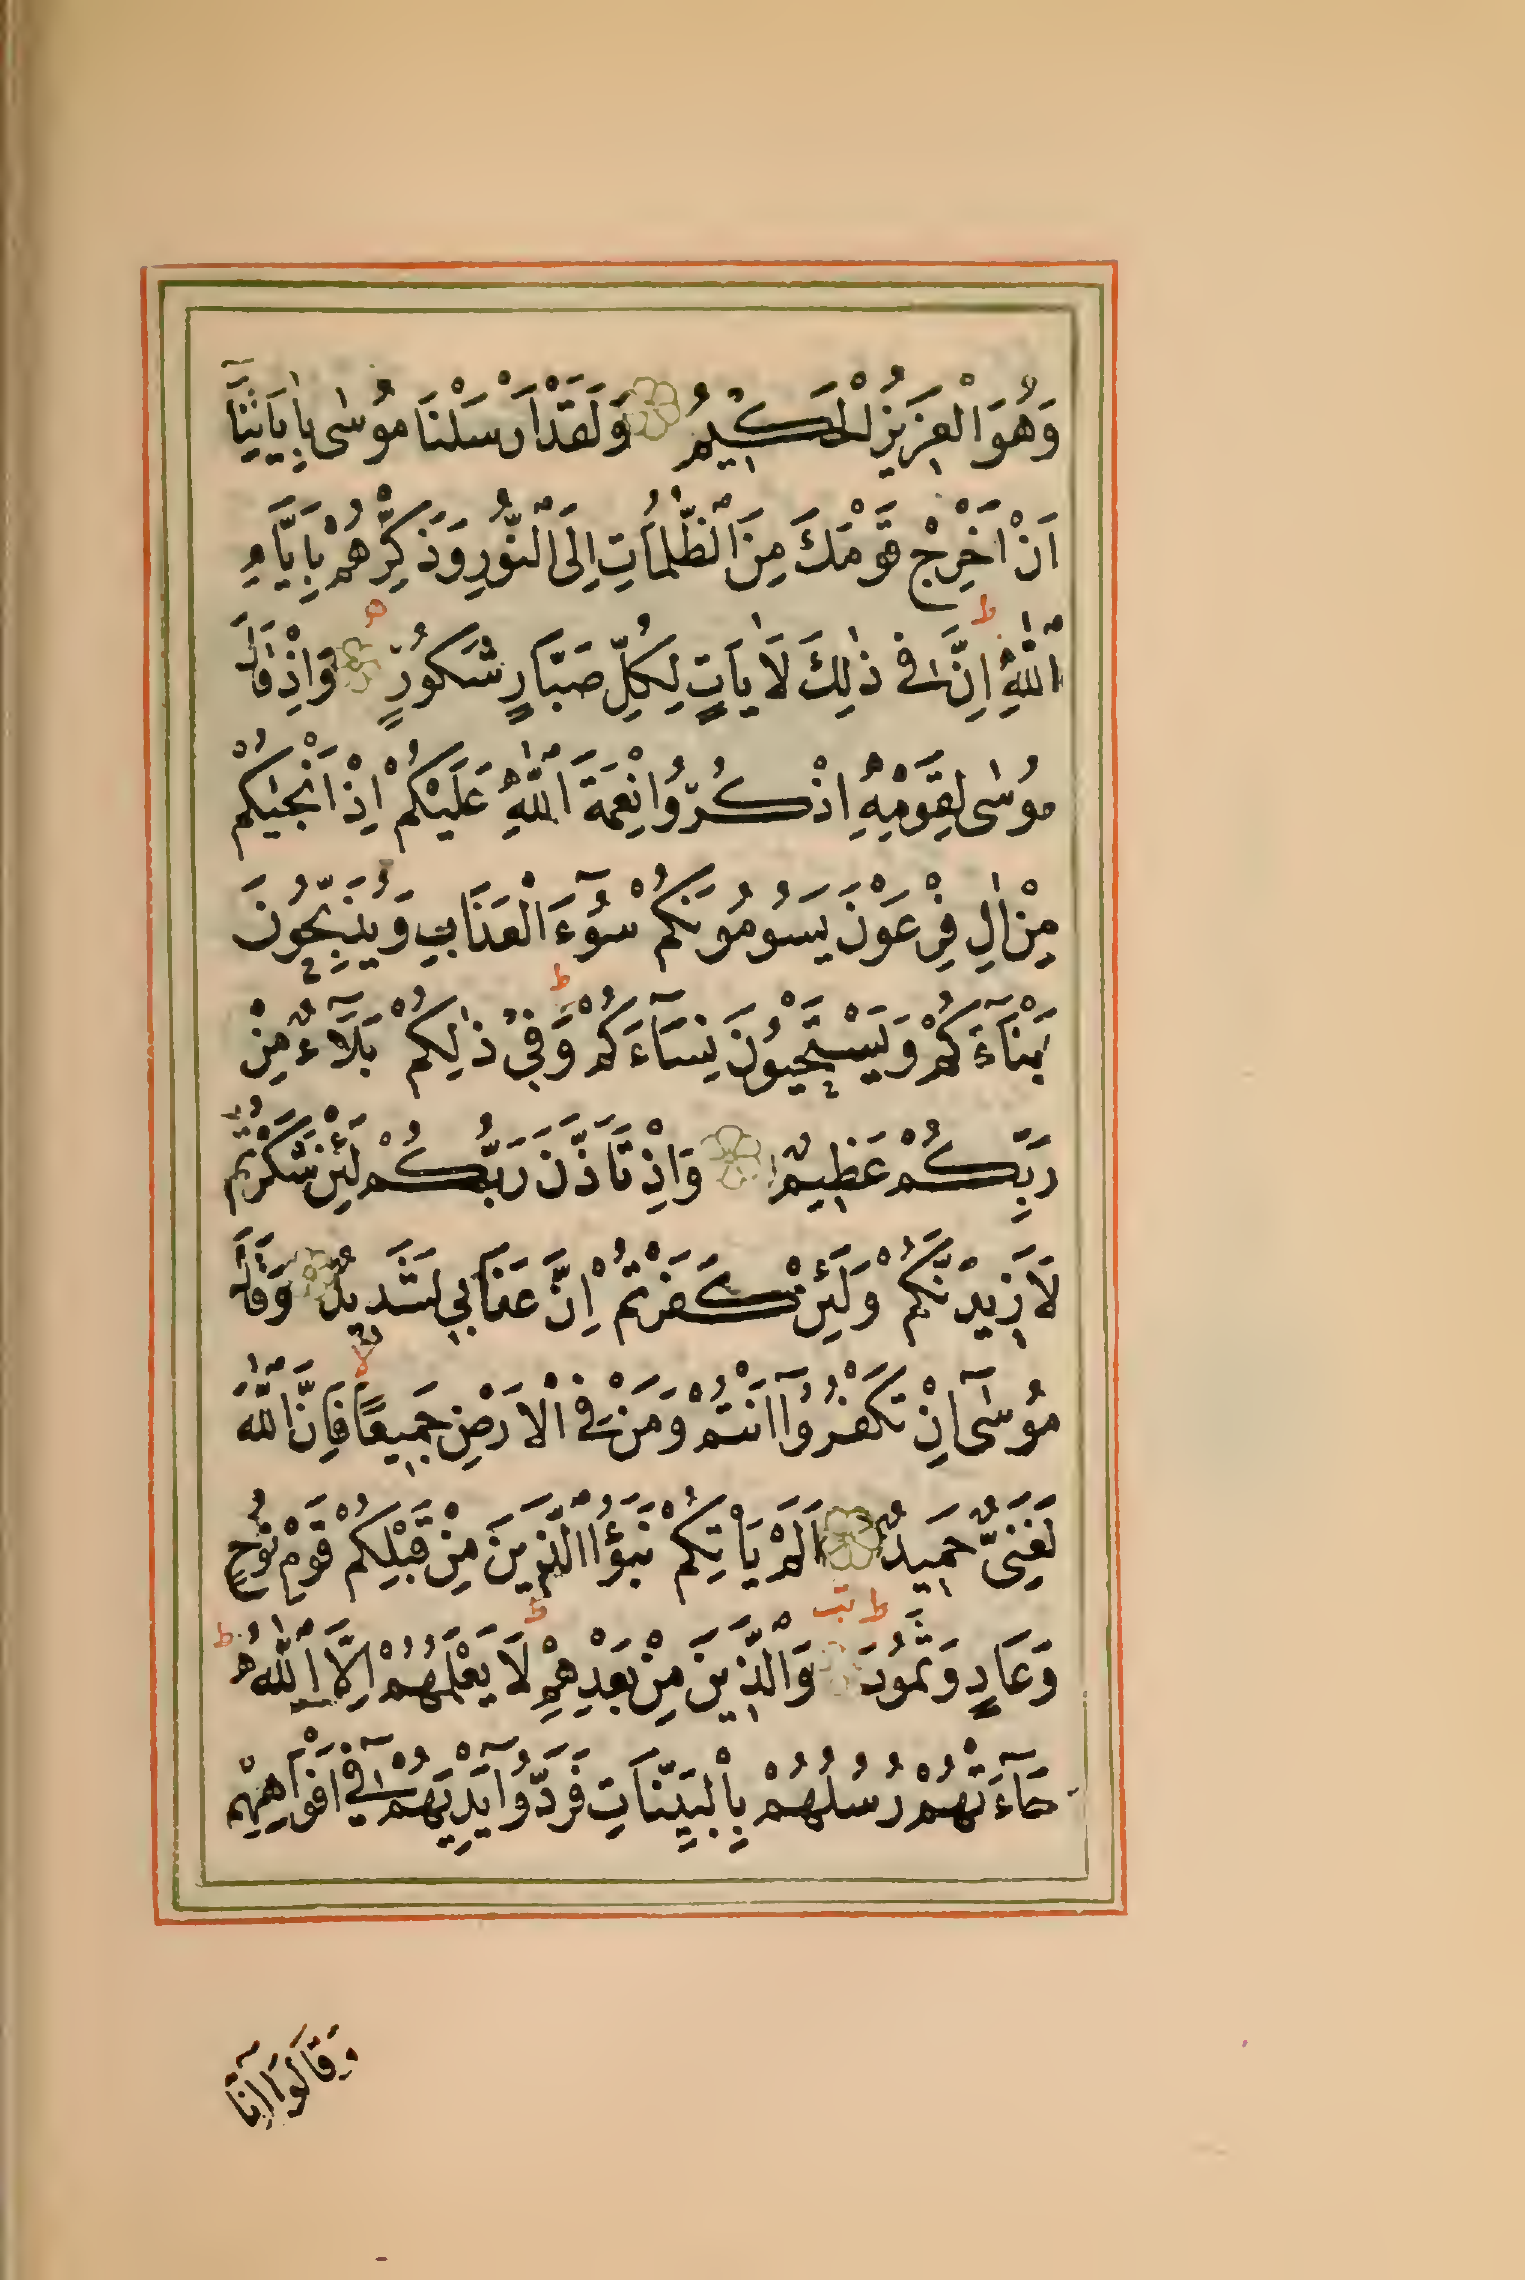 وَهُوَ الْعَزِيزُ الْحَكِيمُ وَلَقَدْ اَرْسَلْنَا مُوسٰى بِاٰيَاتِنَٓا
اَنْ اَخْرِجْ قَوْمَكَ مِنَ الظُّلُمَاتِ اِلَى النُّورِ وَذَكِّرْهُمْ بِاَيَّامِ
ط ه
اللّٰهِ اِنَّ فٖى ذٰلِكَ لَاٰيَاتٍ لِكُلِّ صَبَّارٍ شَكُورٍ وَاِذْ قَالَ
مُوسٰى لِقَوْمِهِ اذْكُرُوا نِعْمَةَ اللّٰهِ عَلَيْكُمْ اِذْ اَنْجٰيكُمْ
مِنْ اٰلِ فِرْعَوْنَ يَسُومُونَكُمْ سُٓوءَ الْعَذَابِ وَيُذَبِّحُونَ
ط
اَبْنَٓاءَكُمْ وَيَسْتَحْيُونَ نِسَٓاءَكُمْ وَفِى ذٰلِكُمْ بَلَٓاءٌ مِنْ
رَبِّكُمْ عَظِيمٌ وَاِذْ تَاَذَّنَ رَبُّكُمْ لَئِنْ شَكَرْتُمْ
لَاَزِيدَنَّكُمْ وَلَئِنْ كَفَرْتُمْ اِنَّ عَذَابِى لَشَدِيدٌ وَقَالَ
لا
مُوسٰٓى اِنْ تَكْفُرُٓوا اَنْتُمْ وَمَنْ فِى الْاَرْضِ جَمِيعًا فَاِنَّ اللّٰهَ
لَغَنِىٌّ حَمِيدٌ اَلَمْ يَاْتِكُمْ نَبَؤُا الَّذِينَ مِنْ قَبْلِكُمْ قَوْمِ نُوحٍ
ط ط ط
وَعَادٍ وَثَمُودَ وَالَّذِينَ مِنْ بَعْدِهِمْ لَا يَعْلَمُهُمْ اِلَّا اللّٰهُ
جَٓاءَتْهُمْ رُسُلُهُمْ بِالْبَيِّنَاتِ فَرَدُّٓوا اَيْدِيَهُمْ فٖٓى اَفْوَاهِهِمْ
وَقَالُٓوا اِنَّا